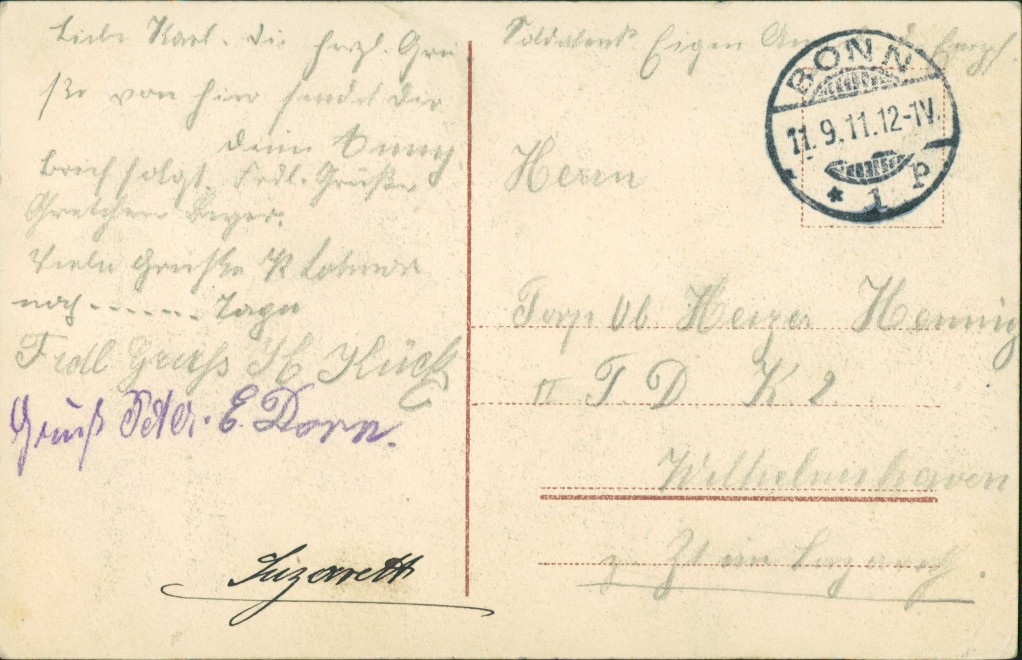 Liebe Karl. Die herzl. Grü
ße von hier sendet dir
deine Anny.
Brief folgt. Frdl. Grüße
Gretchen Beyer.
Viele Grüße
noch ...... Tage
Frdl Gruß H. Kück
Gruß E. Dorn.
Lazarett
Soldatenk. Eigen An d. Empf.
BONN
11.9.11.12-1V.
* 1 p
Herrn
Torp Ob. Heizer Hennig
II T. D. K 2
Wilhelmshaven
z. Zt im Lazarett.